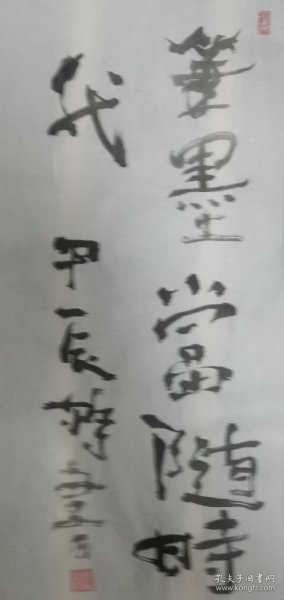 筆墨當隨時
代
甲辰
孔夫子旧书网